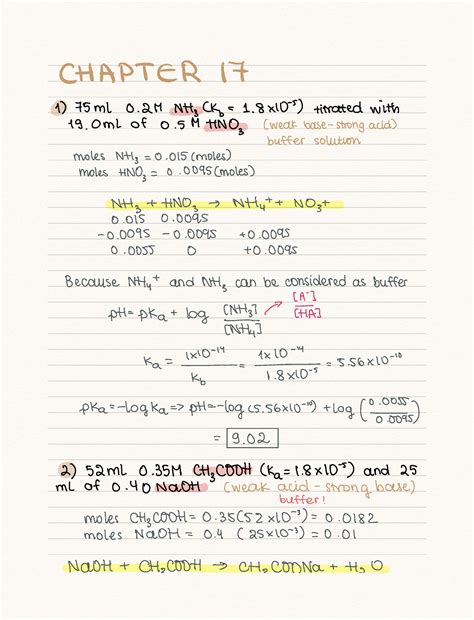 CHAPTER 17
1) 75mL 0.2M NH₃ (Kb = 1.8×10⁻⁵) titrated with
19.0mL of 0.5M HNO₃ (weak base-strong acid)
buffer solution
moles NH₃ = 0.015 (moles)
moles HNO₃ = 0.0095 (moles)
NH₃ + HNO₃ → NH₄⁺ + NO₃⁺
0.015 0.0095
-0.0095 -0.0095 +0.0095
0.0055 0 +0.0095
Because NH₄⁺ and NH₃ can be considered as buffer
pH = pKa + log [NH₃]/[NH₄] → [A⁻]/[HA]
Ka = 1×10⁻¹⁴/Kb = 1×10⁻¹⁴/1.8×10⁻⁵ = 5.56×10⁻¹⁰
pKa = -log Ka => pH = -log (5.56×10⁻¹⁰) + log (0.0055/0.0095)
= 9.02
2) 52mL 0.35M CH₃COOH (Ka = 1.8×10⁻⁵) and 25
mL of 0.40 NaOH (weak acid - strong base)
buffer!
moles CH₃COOH = 0.35 (52×10⁻³) = 0.0182
moles NaOH = 0.4 (25×10⁻³) = 0.01
NaOH + CH₃COOH → CH₃COONa + H₂O